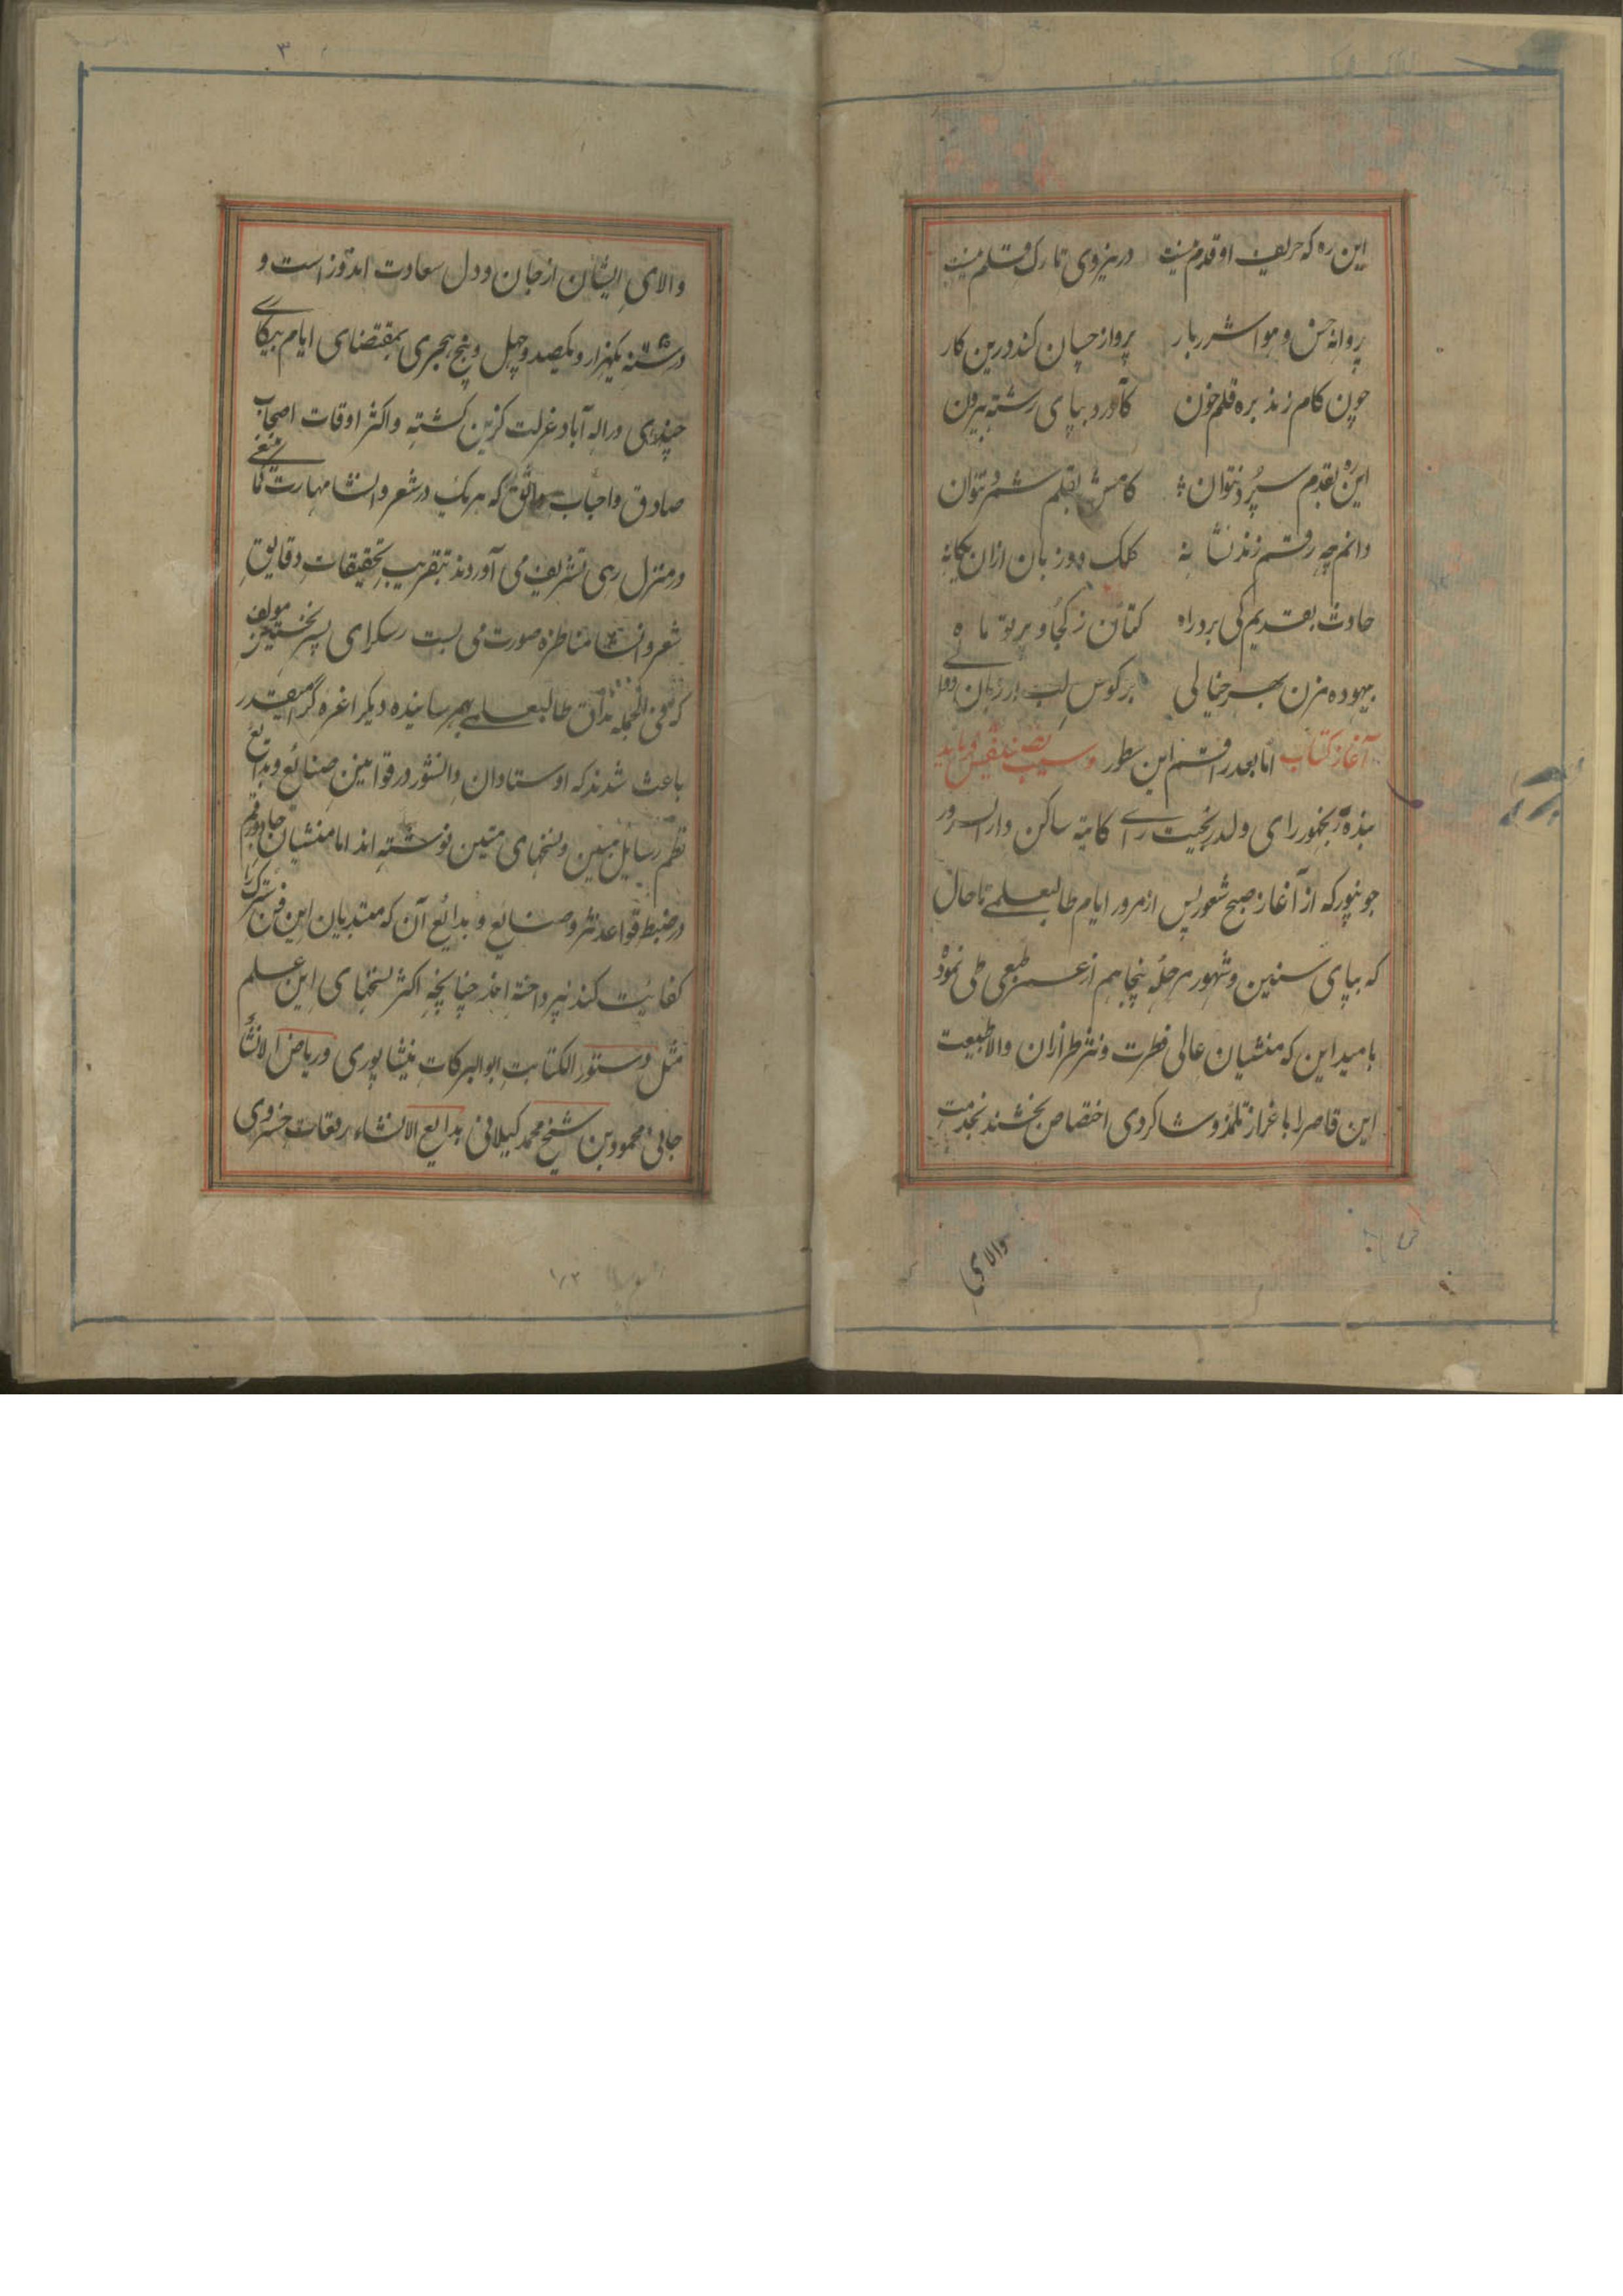 این ره که حریف او قدم نیست در نیروی تارک قلم نیست
پروانهٔ حسن و هوا شرر بار پرواز چسان کند درین کار
چون کام زند بره قلم خون کآورد بپای رشته بیرون
این ره بقدم سپرد نتوان کامش بقلم شمرد نتوان
دانم چه رقم زند نشانه کلک دو زبان ازان یگانه
حادث بقدیم کی برد راه کتان ز کجا و پرتو ماه
بیهوده مزن بهر خیالی بر کوس لب از زبان
آغاز کتاب اما بعد راقم این سطور و سبب تصنیف
بنده رنجهور رای ولد رنجیت رای کایته ساکن دار السرور
جونپور که از آغاز صبح شعور پس از مرور ایام طالبعلمی تا حال
که بپای سنین و شهور مرحلهٔ پنجاهم از عمر طبعی طی نموده
بامید این که منشیان عالی فطرت و نثر طرازان والا طبیعت
این قاصر را باعزاز تلمذ و شاکردی اختصاص بخشند بخدمت
والای
۳
والای ایشان از جان و دل سعادت اندوز است و
در سنه یکهزار و یکصد و چهل و پنج هجری بمقتضای ایام بیکاری
چندی در اله آباد عزلت کزین کشته و اکثر اوقات اصحاب
صادق و احباب واثق که هر یک در شعر و انشا مهارت تمام
در منزل رهی تشریف می آوردند بتقریب تحقیقات دقایق
شعر و انشا مناظره صورت می بست رسکرای پسر مولف
که فی الجمله مذاق طالبعلمی بهم رسانیده دیکر اعزه کرامیقدر
باعث شدند که اوستادان دانشور در قوانین صنایع و بدایع
نظم رسایل مبین و نسخهای متین نوشته اند اما منشیان جادو رقم
در ضبط قواعد نثر و صنایع و بدایع آن که مبتدیان این فن را
کفایت کند نپرداخته اند چنانچه اکثر نسخهای این علم
مثل دستور الکتابت ابو البرکات نیشاپوری و ریاض الانشاء
محمود بن شیخ محمد کیلانی بدایع الانشاء رقعات خسروی